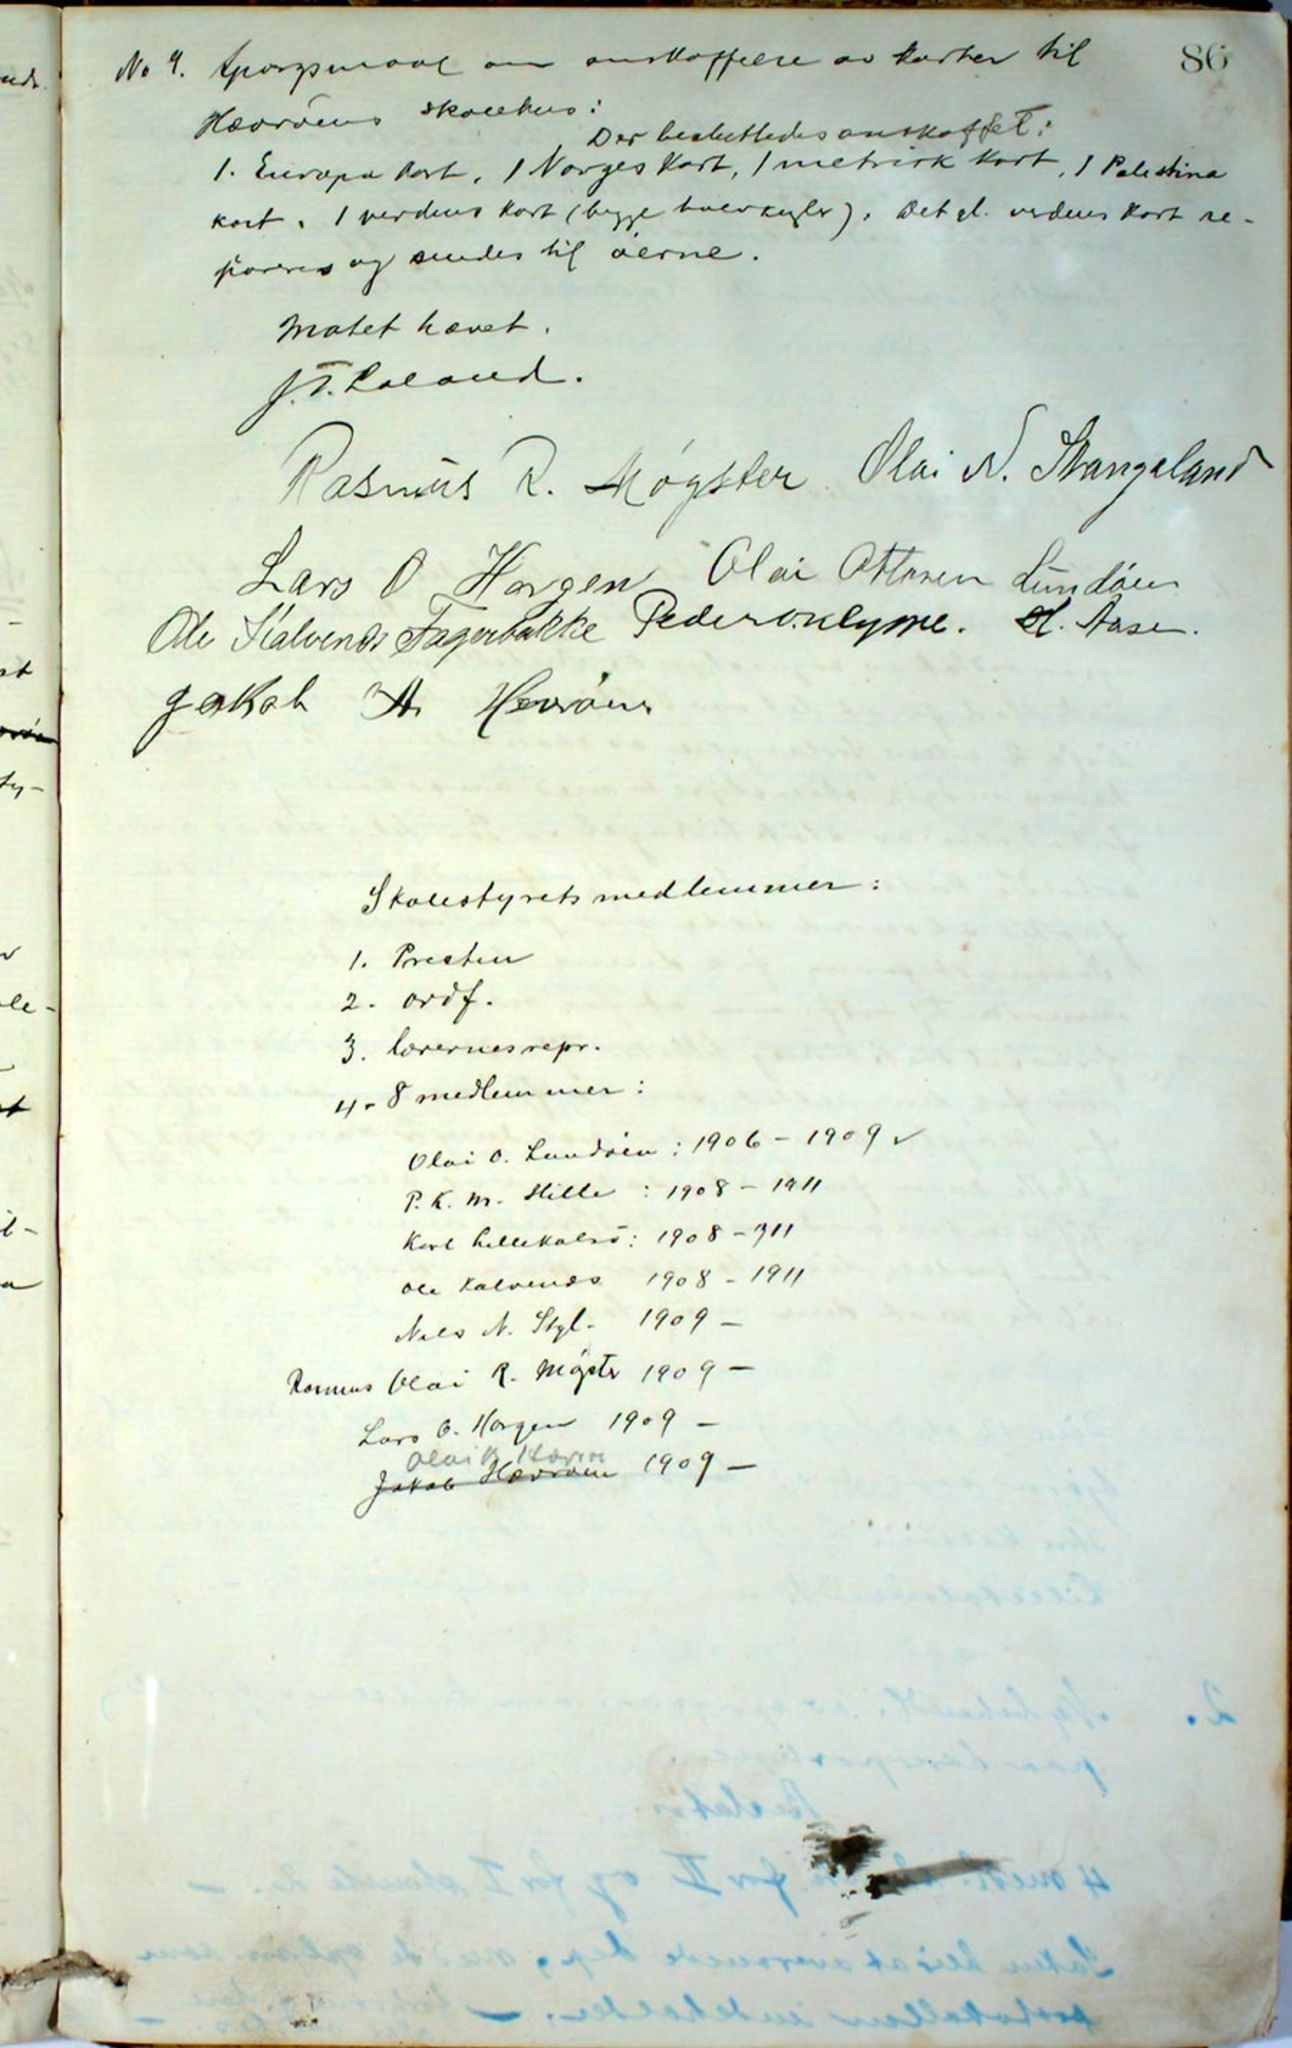 86
No 4. Spørgsmaal om anskaffelse av karter til
Hævrøens skolehus:
Der besluttedes anskaffet:
1. Europa kart, 1 Norges kart, 1 metrisk kart, 1 Palestina
kart, 1 verdens kart (begge halvkugler). Det gl. verdens kart re-
pareres og sendes til øerne.
Møtet hævet.
Rasmus R. Møgster Olai N. Stangeland
Lars O Horgen Olai Ottesen Lundøen
Ole Kalvenes Fagerbakke Peder Aase.
Jakob A. Hevrøen
Skolestyrets medlemmer:
1. Presten
2. ordf.
3. lærernes repr.
4. 8 medlemmer:
Olai O. Lundøen: 1906 - 1909 ✓
P. K. M. Hille: 1908 - 1911
Karl Lillekalsø: 1908 - 911
Ole Kalvenes 1908 - 1911
Nils N. Stgl. 1909 -
Rasmus Olai R. Møgster 1909 -
Lars O. Horgen 1909 -
Olai Hævrø
Jakob Hævrøen 1909 -